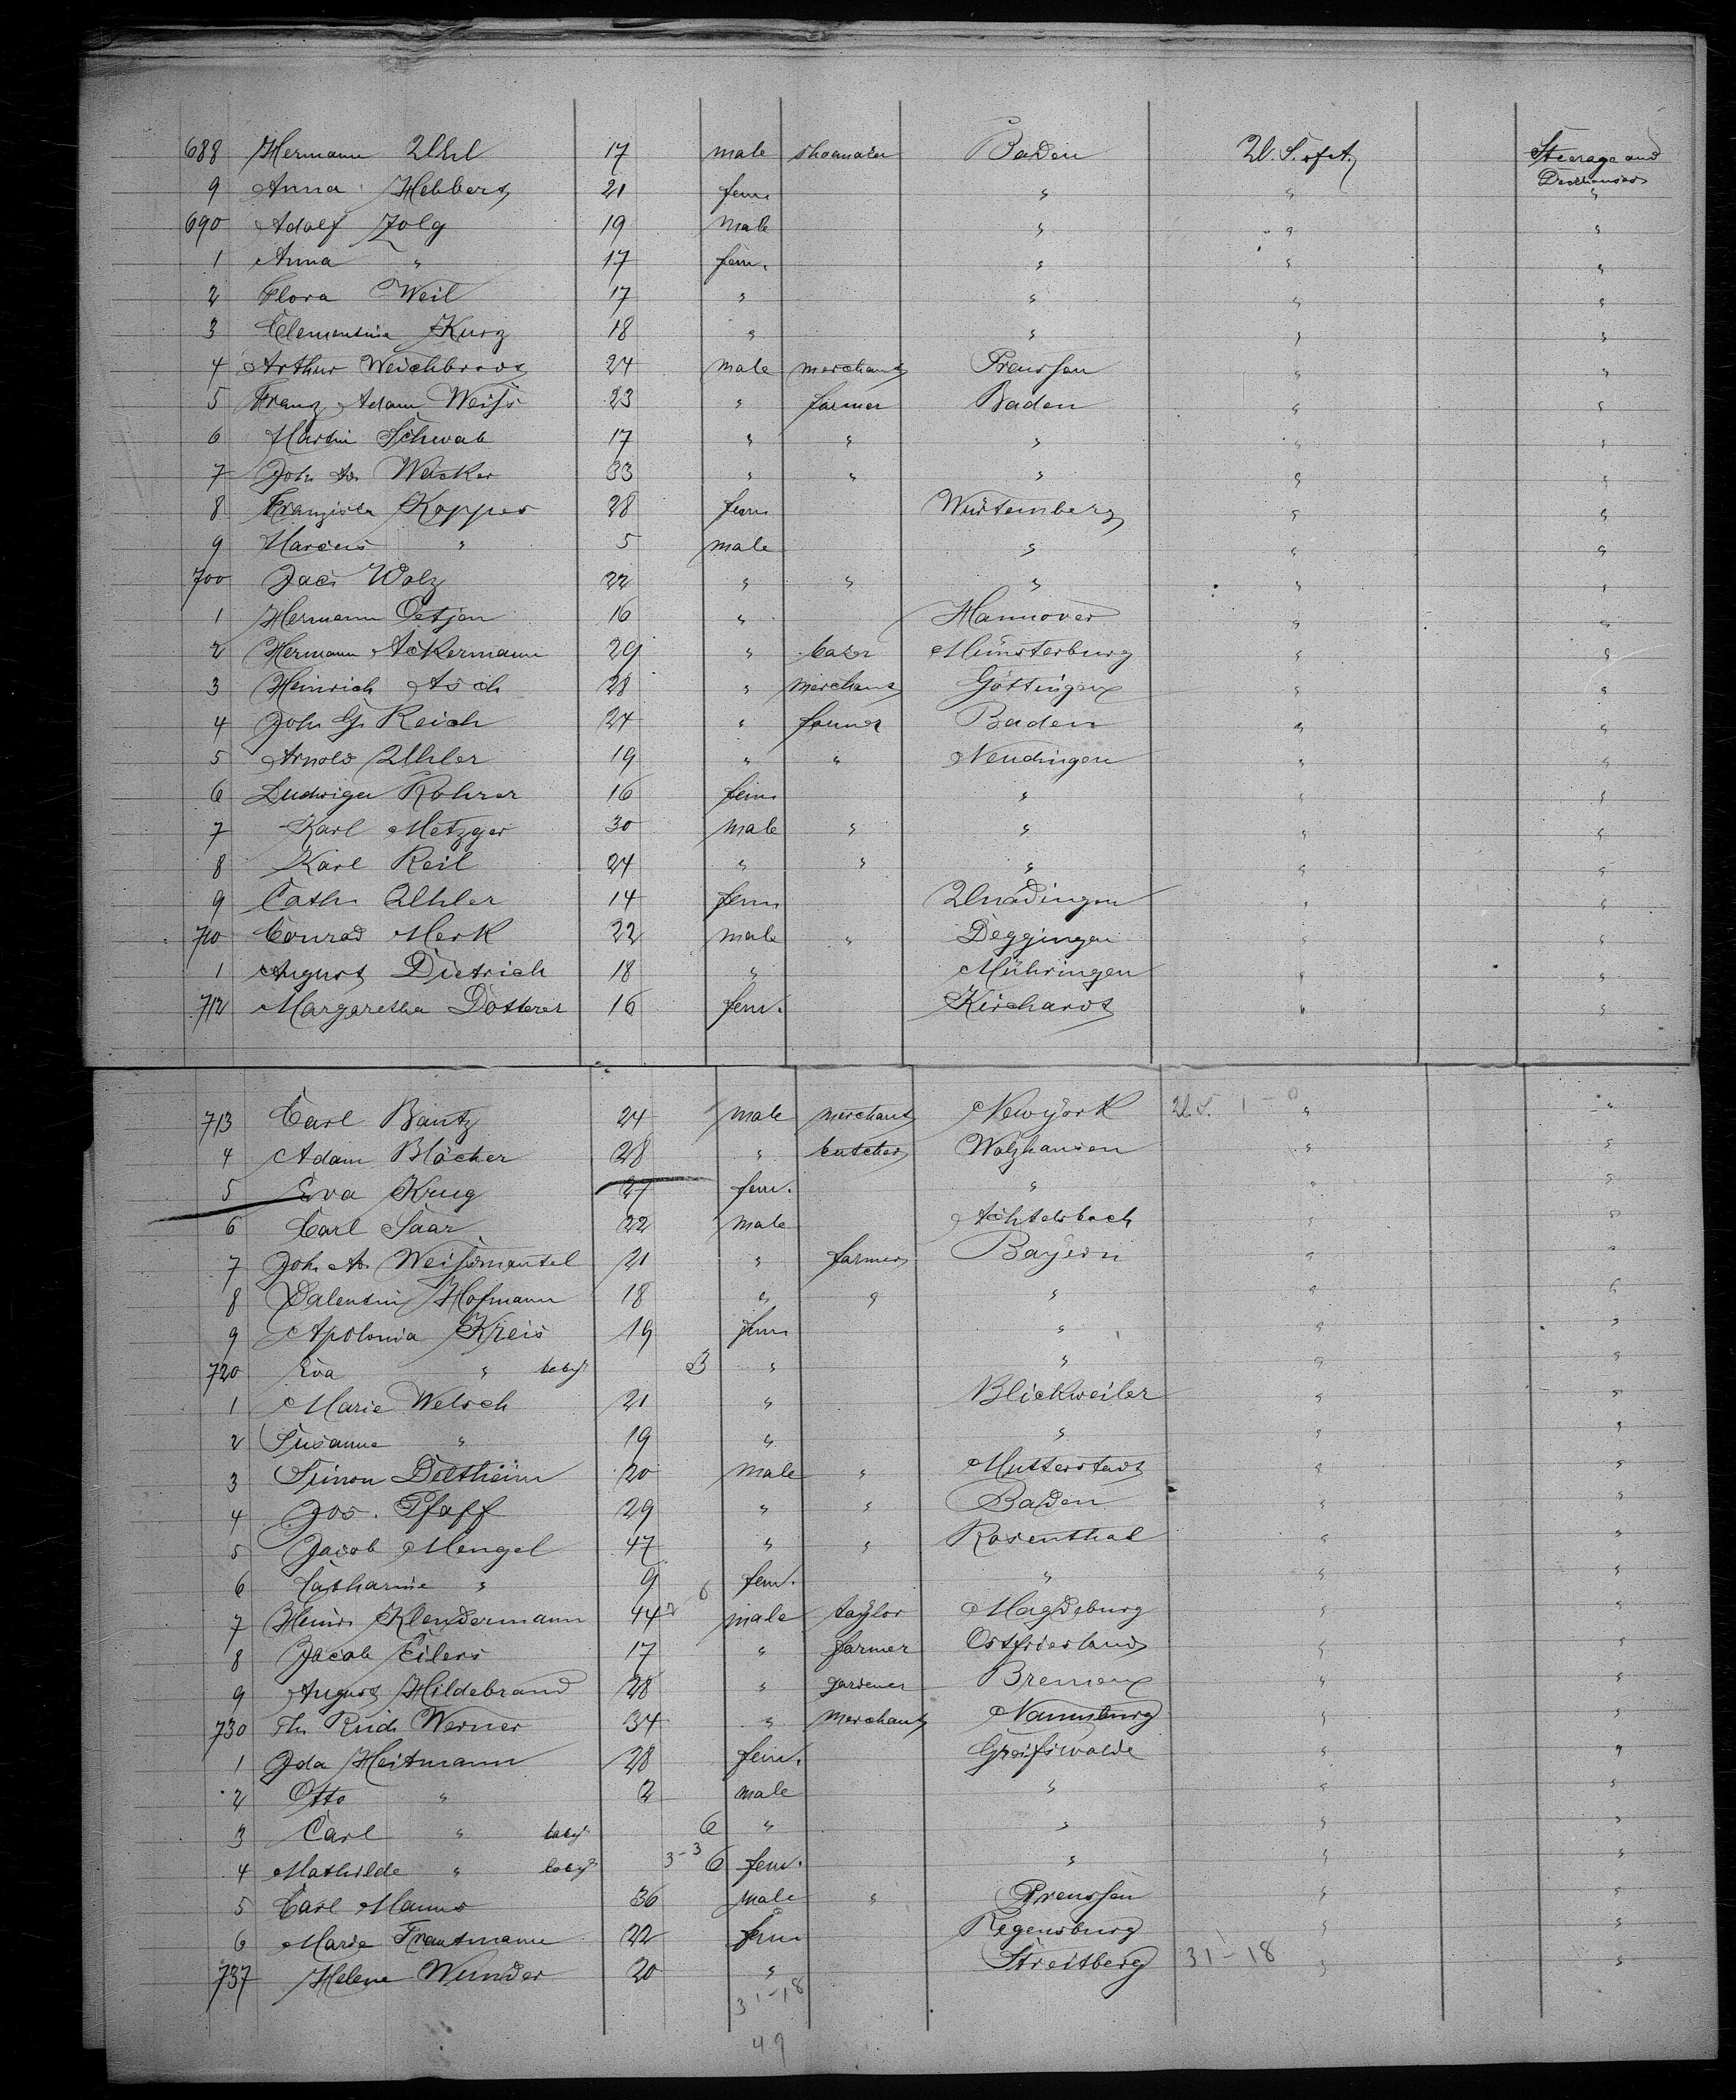 688 Hermann Uhl 17 male shoemaker Baden U.S. of A. Steerage and
Deckhouses
9 Anna Hebbert 21 fem " " "
690 Adolf Zolg 19 male " " "
1 Anna " 17 fem. " " "
2 Flora Weil 17 " " " "
3 Clementine Kurz 18 " " " "
4 Arthur Weichbrodt 24 male merchant Preussen " "
5 Franz Adam Weiss 23 " farmer Baden " "
6 Martin Schwab 17 " " " " "
7 Joh. Ad. Wecker 33 " " " " "
8 Franziska Kopper 28 fem Würtemberg " "
9 Marcus " 5 male " " "
700 Jac. Walz 22 " " " " "
1 Hermann Oetjen 16 " Hannover " "
2 Hermann Ackermann 29 " Münsterburg " "
3 Heinrich Asch 28 " merchant Göttingen " "
4 Joh. G. Reich 24 " farmer Baden " "
5 Arnold Uhler 19 " " Neudingen " "
6 Ludwiga Rohrer 16 fem " " "
7 Karl Metzger 30 male " " " "
8 Karl Reil 24 " " " " "
9 Cath. Uhler 14 fem Unadingen " "
710 Conrad Merk 22 male " Deggingen " "
1 August Dietrich 18 " Mühringen " "
712 Margaretha Dotterer 16 fem. Kirchardt " "
713 Carl Bantz 24 male merchant New York U.S. 1-0 " "
4 Adam Blöcher 28 " butcher Wolzhausen " "
5 Eva Krug 27 fem. " " "
6 Carl Saar 22 male Achtelsbach " "
7 Joh. Ad. Weissmantel 21 " farmer Bayern " "
8 Valentin Hofmann 18 " " " " "
9 Apolonia Kreis 19 fem " " "
720 Eva " baby 3 " " " "
1 Marie Welsch 21 " Blickweiler " "
2 Susanna " 19 " " " "
3 Simon Deltheim 20 male " Mutterstadt " "
4 Jos. Pfaff 29 " " Baden " "
5 Jacob Mengel 47 " " Rosenthal " "
6 Catharine " 9 fem. " " "
7 Heinr. Klendermann 44 male taylor Magdeburg " "
8 Jacob Eilers 17 " farmer Ostfriesland " "
9 August Hildebrand 28 " gardener Bremen " "
730 Th. Rud. Werner 34 " merchant Naumburg " "
1 Ida Heitmann 28 fem. Greifswalde " "
2 Otto " 2 male " " "
3 Carl " baby 6 " " " "
4 Mathilde " baby 3-3 6 fem. " " "
5 Carl Manns 36 male " Preussen " "
6 Marie Trautmann 22 fem Regensburg " "
737 Helene Wunder 20 " Streitberg 31-18 " "
31-18
49